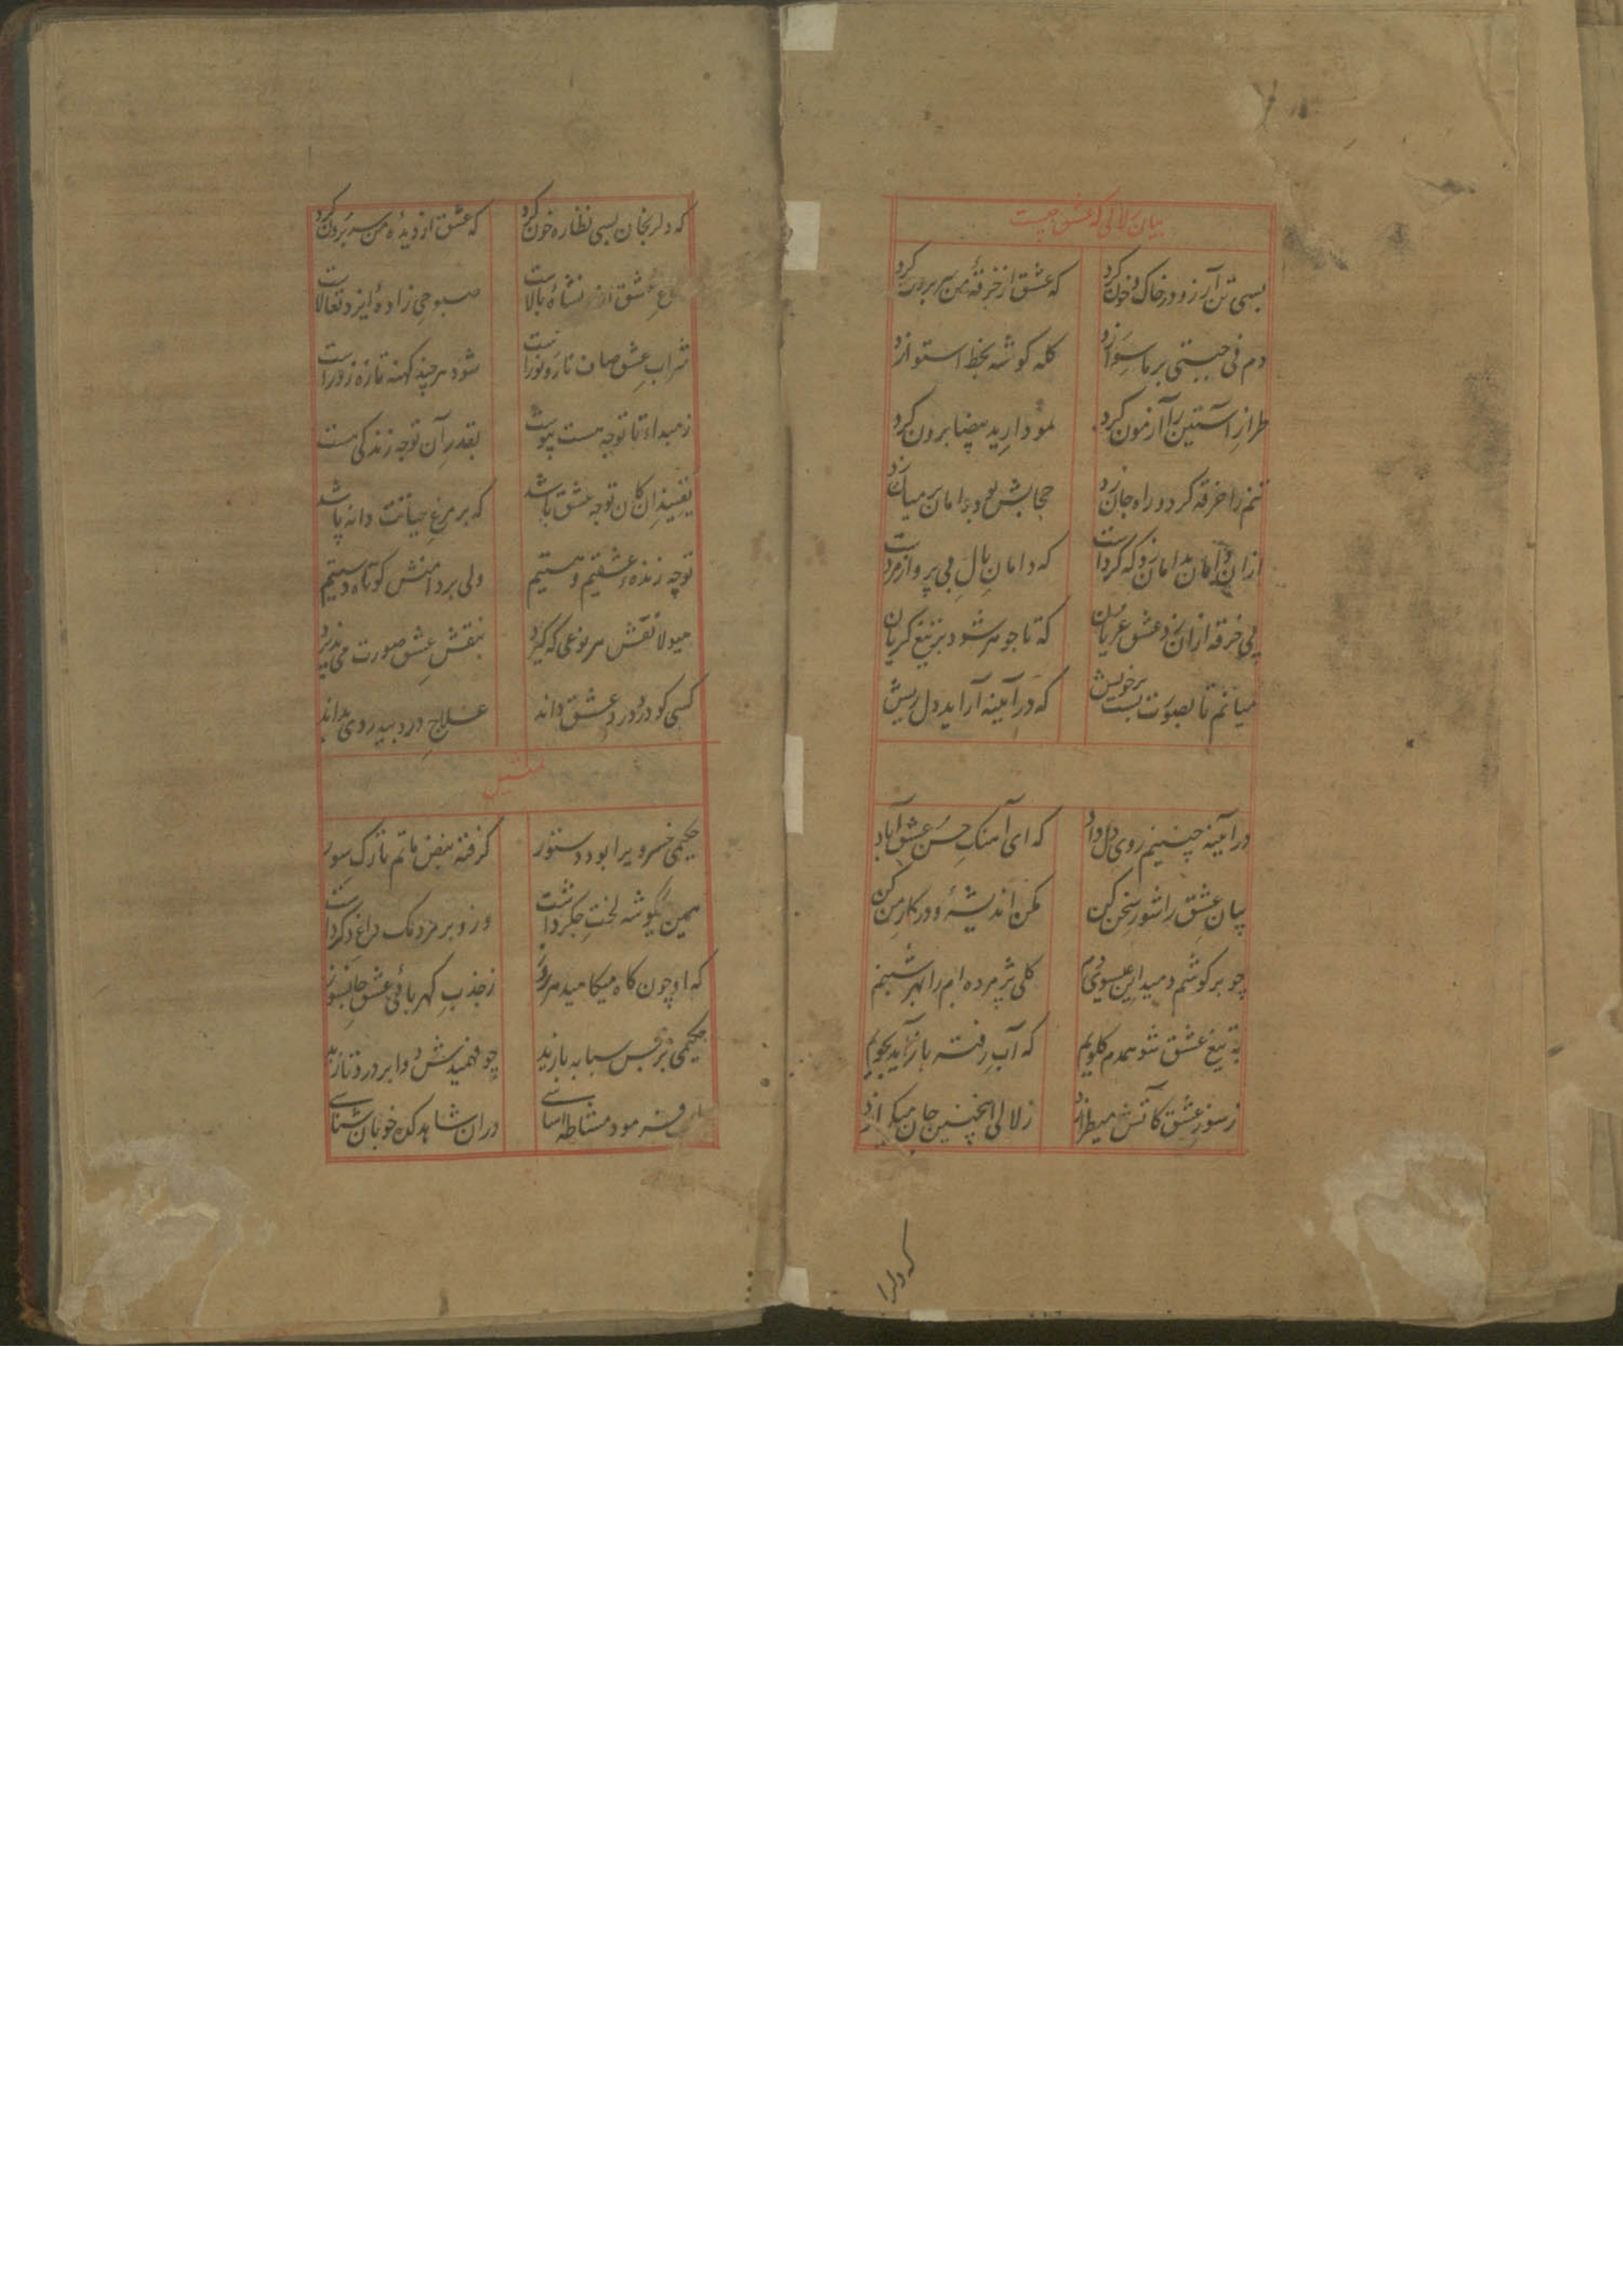 بیان زلالی که عشق چیست
بسی تن آرزو در خاک و خون کرد که عشق از خرقهٔ من سر برون کرد
دم فی جبتی بر ماسوا زد کله گوشه بخط استوا زد
طراز آستین را آزمون کرد نمودار ید بیضا برون کرد
تنم را خرقه کرد و راه جان زد حجابش بود دامان بر میان زد
ازان دامان بدامان زد که گرد است که دامان بال بی پرواز مرد است
پی خرقه ازان زد عشق عریان که تا جوهر شود بر تیغ گریان
میانم تا بصورت بست بر خویش که در آیینه آراید دل ریش
در آیینه چنینم روی دل داد که ای آهنگ حسن عشق آباد
بیان عشق را شور سخن کن مکن اندیشهٔ و در کار من کن
چو بر گوشم دمید این عیسوی دم گلی پژمرده ام را بهر شبنم
به تیغ عشق شو همدم گلویم که آب رفته باز آید بجویم
ز سوز عشق کاتش میطرازد زلالی اینچنین جان میگدازد
که دلرا
که دلرا بخان بسی نظاره خون کرد که عشق از دیدهٔ من سر برون کرد
عشق از نشاهٔ بالاست صبوحی زادهٔ ایزد تعالاست
شراب عشق صاف نار و نور است شود هر چند کهنه تازه زور است
ز مبداء تا توجه هست پیوست بقدر آن توجه زندگی هست
یقین دان کان توجه عشق باشد که بر مرغ حیاتت دانه پاشد
توجه زنده عشقیم و هستیم ولی بر دامنش کوتاه دستیم
هیولا نقش هر نوعی که گیرد بنقش عشق صورت می پذیرد
کسی کو درد درد عشق داند علاج درد بیدردی بداند
تمثیل
حکیمی خسرویرا بود دستور گرفته نبض ماتم نازک سور
همین یکگوشه لخت جگر داشت وزو بر مردمک داغ دگر داشت
که او چون کاه میکاهید هر روز ز جذب کهربائی عشق جانسوز
حکیمی نبض سبابه یازید چو فهمیدش دوا بر درد نازید
فرمود مشاطه اسائی در ان شاهدکده خوبان شناسی